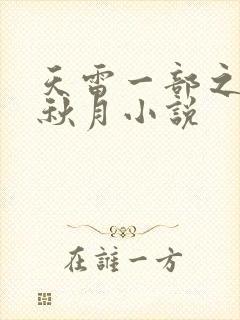 天雷一部之
秋月小說
在誰一方